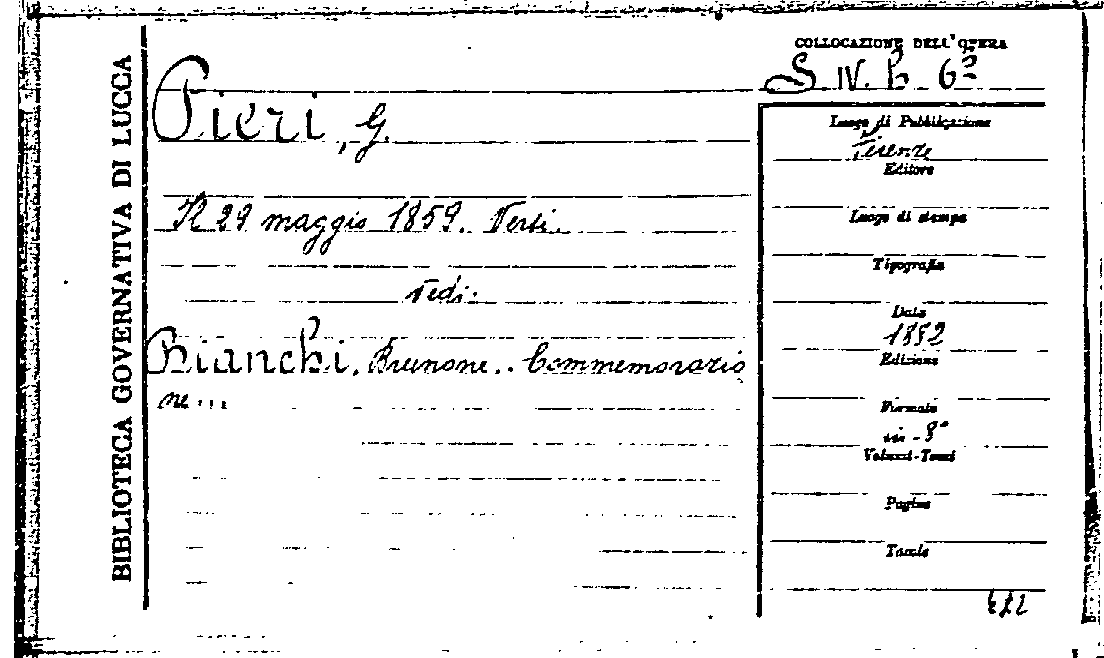 BIBLIOTECA GOVERNATIVA DI LUCCA
COLLOCAZIONE DELL'OPERA
S. IV. b. 63
Pieri, G.
Il 29 maggio 1859. Versi.
Vedi:
Bianchi, Brunone.. Commemorazio
ne....
Luogo di Pubblicazione
Firenze
Editore
Luogo di stampa
Tipografia
Data
1852
Edizione
Formato
in-8°
Volumi-Tomi
Pagine
Tavole